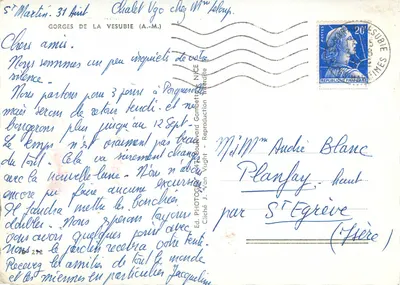 St Martin. 31 Août Chalet Ugo chez Mme
GORGES DE LA VESUBIE (A.-M.)
Chers amis.
Nous sommes un peu inquiets de votre
silence.
Nous partons pour 3 jours à
mais serons de retour lundi et ne
bougerons plus jusqu'au 12 Sept.
Le temps n'est vraiment pas beau
du tout. Cela va surement changer
avec la nouvelle lune. Nous n'avons
encore pu faire aucune excursion
Il faudra mettre les bouchées
doubles. Nous espérons toujours
vous avoir quelques jours avec
nous. le jardin recevra votre tente.
Recevez les amitiés de tout le monde
et les miennes en particulier Jacqueline
Boulevard Gambetta NICE
Reproduction interdite
20F
M. et Mme André Blanc
Planfay. haut
par St Egrève
(Isère)